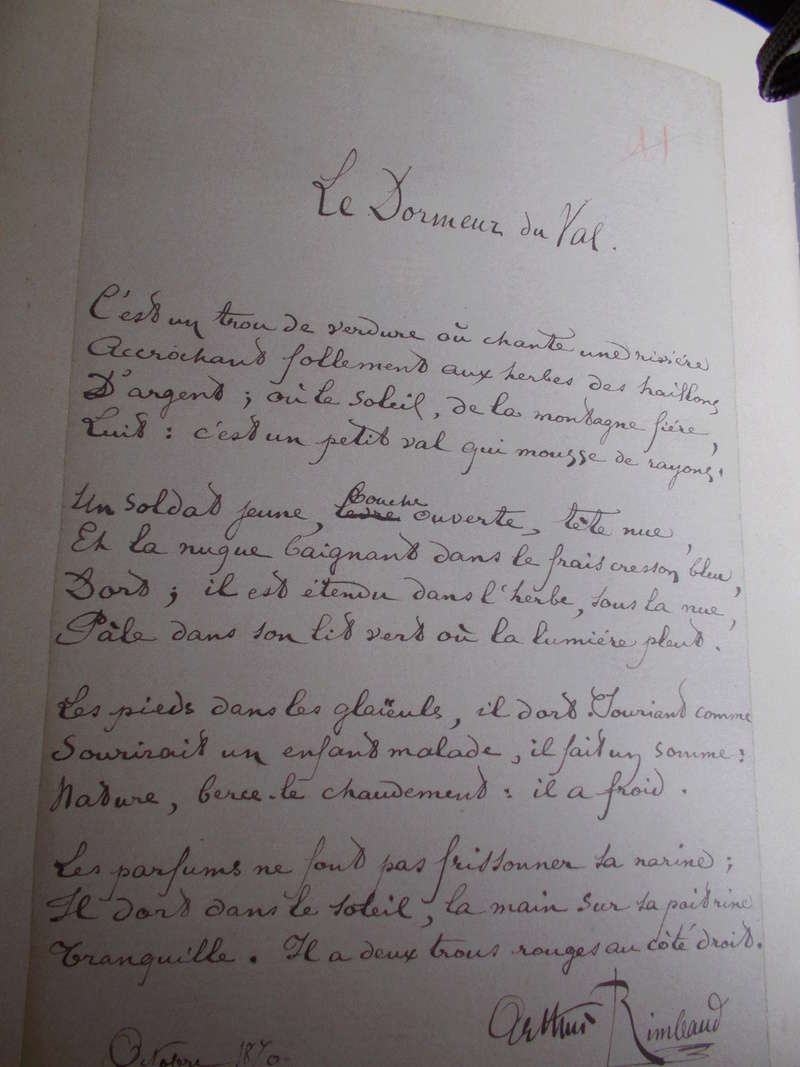 11
Le Dormeur du Val.
C'est un trou de verdure où chante une rivière
Accrochant follement aux herbes des haillons
D'argent ; où le soleil, de la montagne fière,
Luit : c'est un petit val qui mousse de rayons.
Un soldat jeune, lèvre bouche ouverte, tête nue,
Et la nuque baignant dans le frais cresson bleu,
Dort ; il est étendu dans l'herbe, sous la nue,
Pâle dans son lit vert où la lumière pleut.
Les pieds dans les glaïeuls, il dort. Souriant comme
Sourirait un enfant malade, il fait un somme :
Nature, berce-le chaudement : il a froid.
Les parfums ne font pas frissonner sa narine ;
Il dort dans le soleil, la main sur sa poitrine
Tranquille. Il a deux trous rouges au côté droit.
Arthur Rimbaud
Octobre 1870